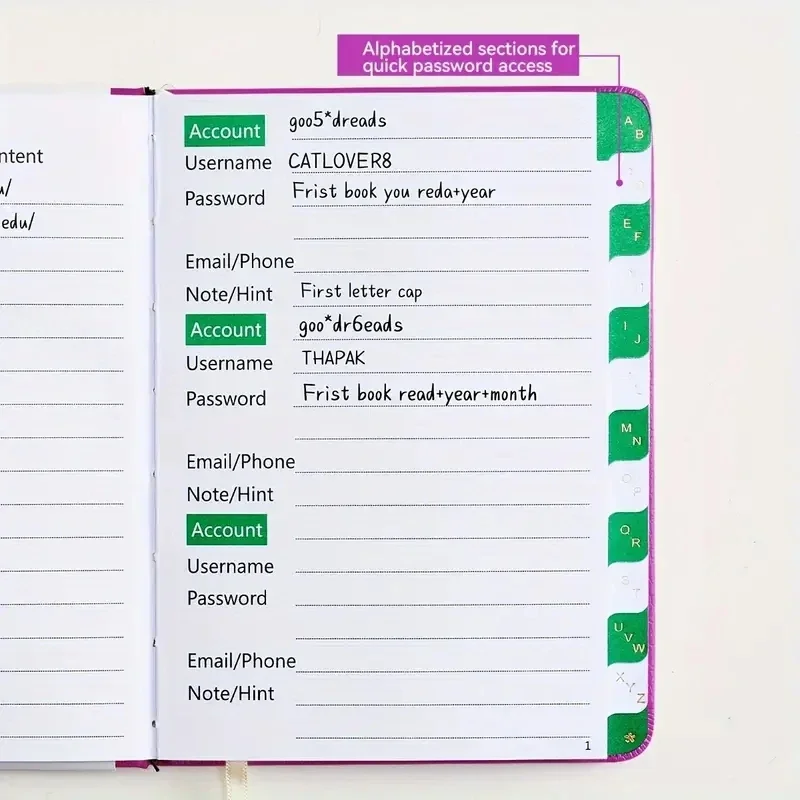 Alphabetized sections for
quick password access
ntent
u/
edu/
Account goo5*dreads
Username CATLOVER8
Password Frist book you reda+year
Email/Phone
Note/Hint First letter cap
Account goo*dr6eads
Username THAPAK
Password Frist book read+year+month
Email/Phone
Note/Hint
Account
Username
Password
Email/Phone
Note/Hint
1
A B
E F
I J
M N
O P
Q R
S T
U V W
X Y Z